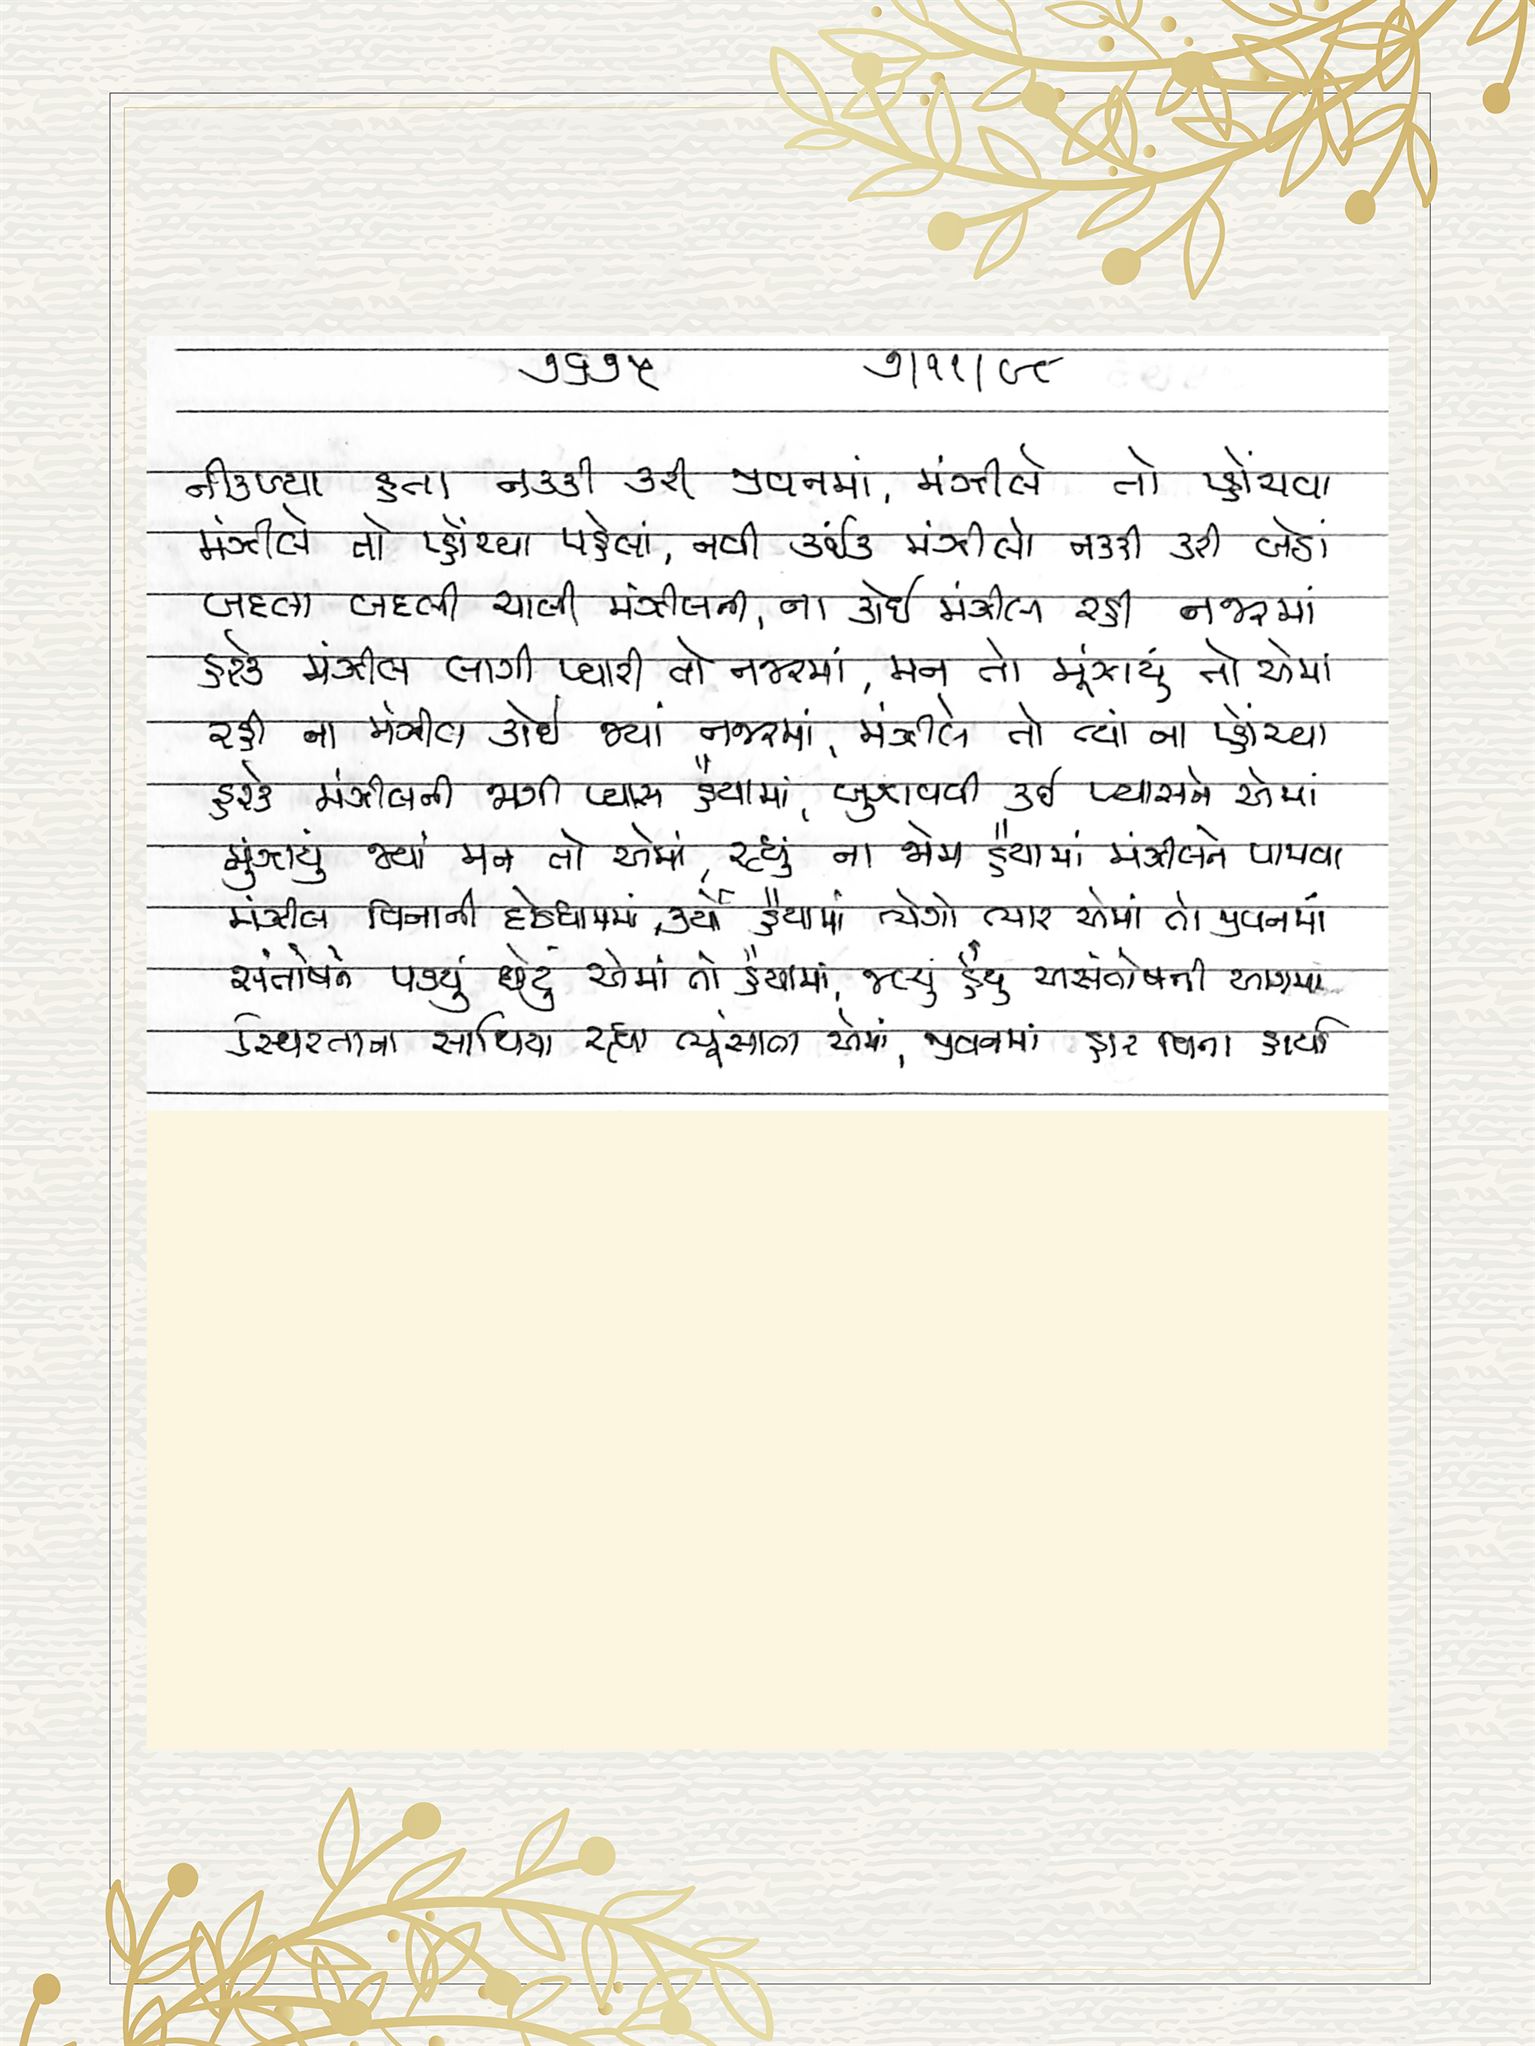 ૭૬૭૫ ૭/૧૧/૯૮
નીકળ્યા હતા નક્કી કરી જીવનમાં, મંઝીલે તો પ્હોંચવા
મંઝીલે તો પ્હોંચ્યા પહેલાં, નવી કંઈક મંઝીલો નક્કી કરી બેઠાં
બદલા બદલી ચાલી મંઝીલની, ના કોઈ મંઝીલ રહી નજરમાં
હરેક મંઝીલ લાગી પ્યારી તો નજરમાં, મન તો મૂંઝાયું તો એમાં
રહી ના મંઝીલ કોઈ જ્યાં નજરમાં, મંઝીલે તો ત્યાં ના પ્હોંચ્યા
હરેક મંઝીલની જાગી પ્યાસ હૈયામાં, બુઝાવવી કઈ પ્યાસને એમાં
મુંઝાયું જ્યાં મન તો એમાં, રહ્યું ના જોમ હૈયામાં મંઝીલને પામવા
મંઝીલ વિનાની દોડધામમાં, કર્યો હૈયામાં ત્યેગો ત્યાર એમાં તો જીવનમાં
સંતોષને પડ્યું છેટું એમાં તો હૈયામાં, જલ્યું હૈયું અસંતોષની આગમાં
સ્થિરતાના સાથિયા રહ્યા ભૂંસાતા એમાં, જીવનમાં હાર વિના હાર્યા